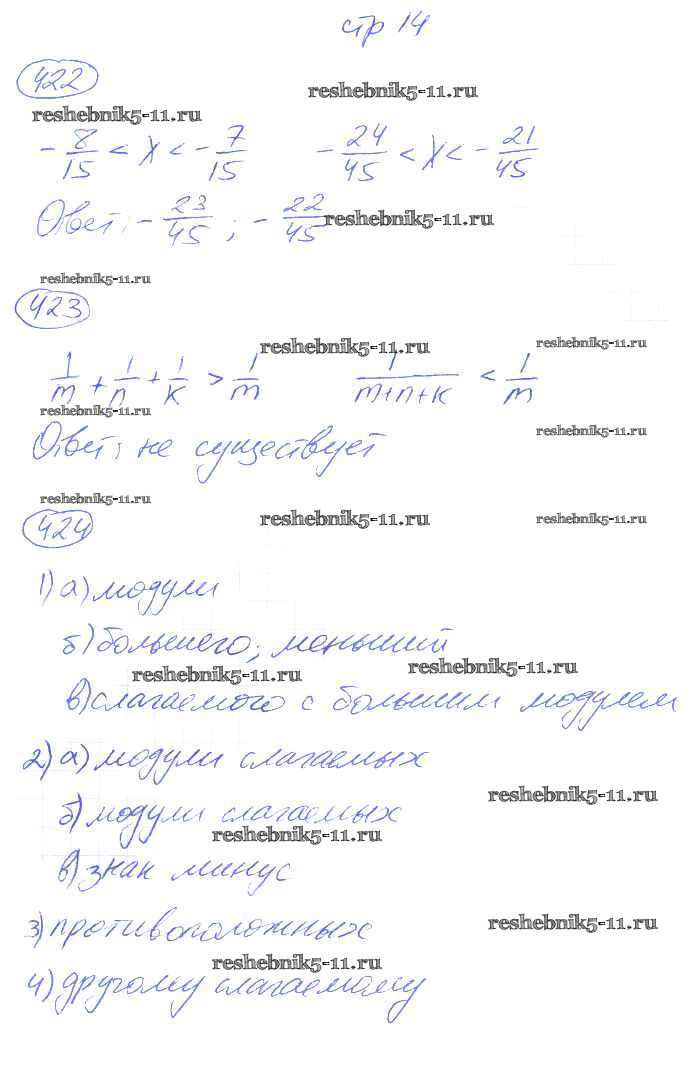 стр 14
422
reshebnik5-11.ru
reshebnik5-11.ru
-8/15 < X < -7/15     -24/45 < X < -21/45
Ответ: -23/45 ; -22/45
reshebnik5-11.ru
reshebnik5-11.ru
423
reshebnik5-11.ru
reshebnik5-11.ru
1/m + 1/n + 1/k > 1/m     1/(m+n+k) < 1/m
reshebnik5-11.ru
reshebnik5-11.ru
Ответ: не существует
reshebnik5-11.ru
reshebnik5-11.ru
reshebnik5-11.ru
424
1) а) модули
б) большего; меньший
reshebnik5-11.ru
reshebnik5-11.ru
в) слагаемого с большим модулем
2) а) модули слагаемых
reshebnik5-11.ru
б) модули слагаемых
reshebnik5-11.ru
в) знак минус
3) противоположных
reshebnik5-11.ru
reshebnik5-11.ru
4) другому слагаемому